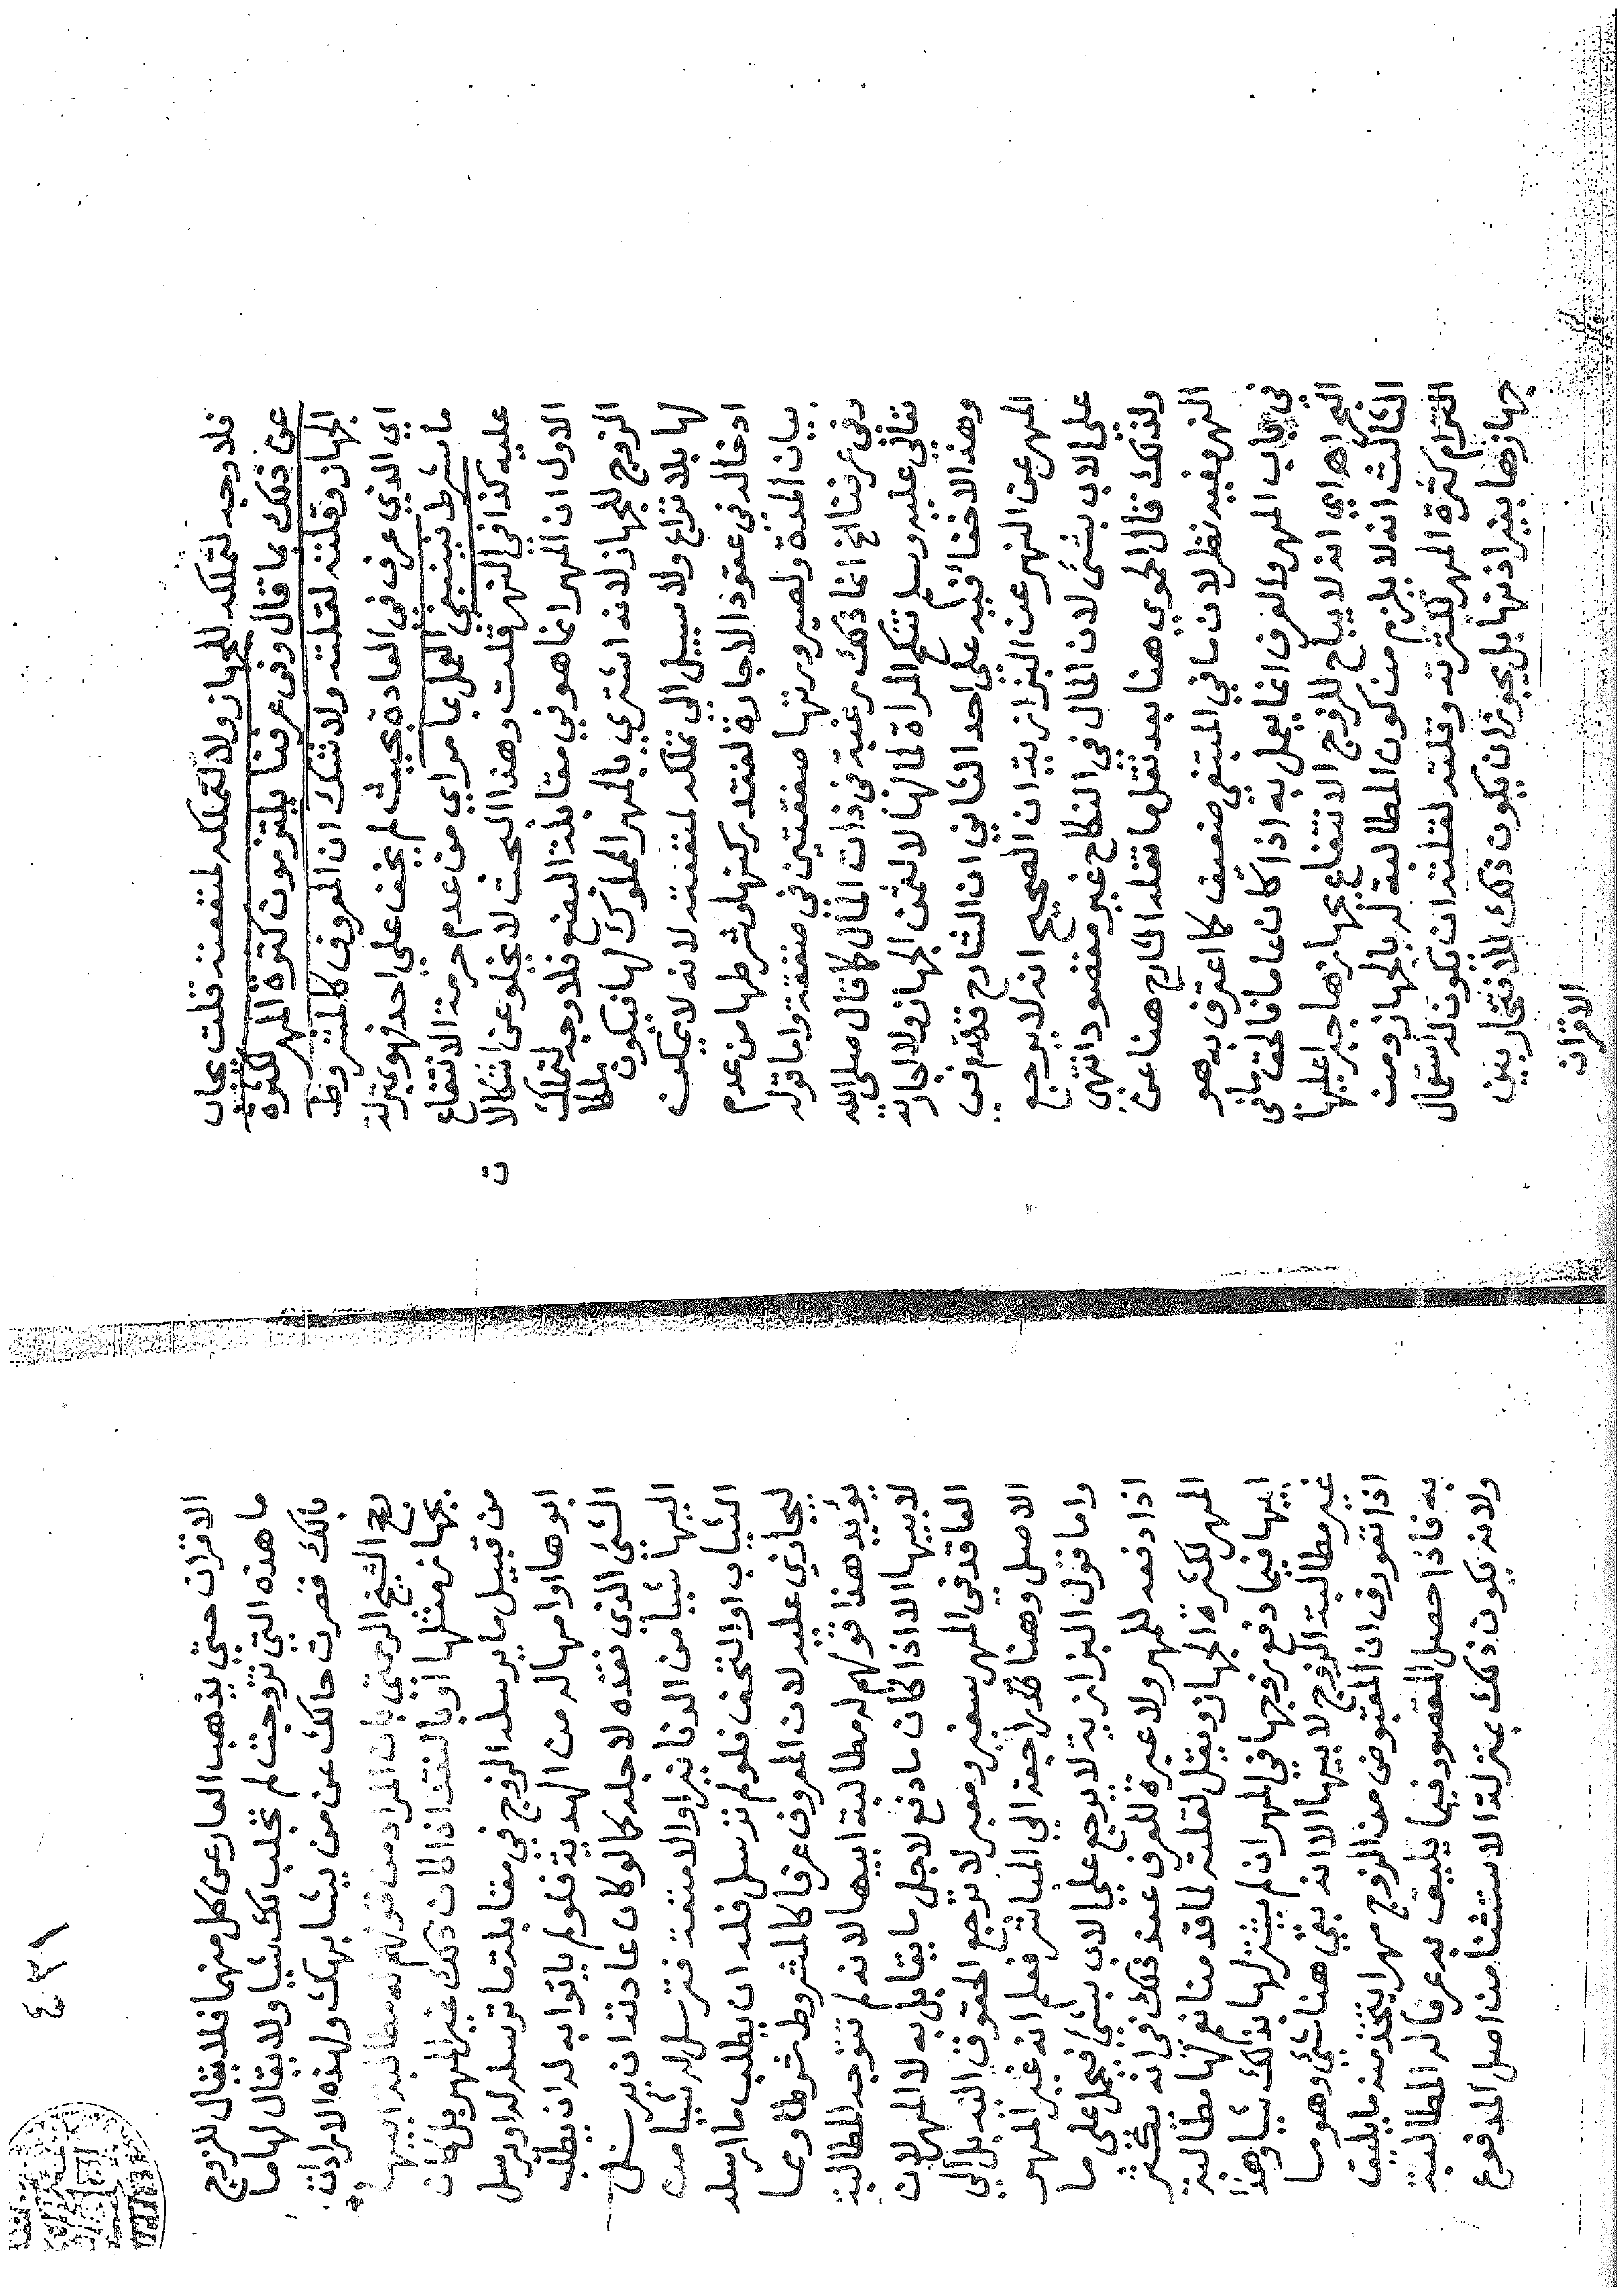 فلا وجه لتملكه للجهاز ولا لتملكه لمنفعته قلت يجاب
عن ذلك بما قال وفي عرفنا يلتزمون كثرة المهر لكثرة
الجهاز وقلته لقلته ولا شك ان المعروف كالمشروط
اي الذي عرف في العادة بحيث لم يخف علي احد فهو بمنزلة
ما شرط فينبغي العمل بما مر اي من عدم حرمة الانتفاع
عليه كذا في النهر قلت وهذا البحث لا يخلو عن اشكالا
ت
الاول ان المهر انما هو في مقابلة البضع فلا وجه لتملك
الزوج للجهاز لانه اشتري بالمهر المملوك لها فيكون ملكا
لها بلا نزاع ولا سبيل الي تملكه لمنفعته لانه لا يمكن
ادخاله في عقود الاجارة لفقد ركنها وشرطها من عدم
بيان المدة ولصيرورتها صفقتين في صفقة واما قوله
وفي عرفنا الخ انما ذلك رغبة في ذات المال كما قال صلى الله
تعالي عليه وسلم تنكح المراة لمالها لا لثمن الجهاز والا لجاز له
وهذا لاخفا فيه علي احد الثاني ان الشارح قدم في
المهر عن النهر عن البزازية ان الصحيح انه لا يرجع
علي الاب بشئ لان المال في النكاح غير مقصود انتهى
ولذلك قال الحموي هنا بعد نقل ما نقله الشارح هنا عن
النهر فيه نظر لان ما في المبتغي ضعيف كما اعترف به هو
في باب المهر والعرف انما يعمل به اذا كان عاما فالحق ما في
البحر اه اي انه لا يباح للزوج الانتفاع بجهازها جبرا عليها
الثالث انه لا يلزم من كون المطالبة له بالجهاز ومن
التزام كثرة المهر لكثرته وقلته لقلته ان يكون له استعمال
جهازها بغير اذنها بل يجوز ان يكون ذلك للافتخار بين
الاقران
٤٣١
الاقران حتي يذهب العار عن كل منهما فلا يقال للزوج
ما هذه التي تزوجت لم تجلب لك شيا ولا يقال لها ما
بالك قصرت حالك عن من يشابهك ولهذه الارادات
الشيخ الرحمتي بان المراد من قولهم له مطالبة ابيها
بجهاز مثلها او بالنقد اذا كان ذلك غير المهر بل كان
من قبيل ما يرسله الزوج في مقابلة ما ترسله له او يرسل
ابوها او امها له من الهدية فلو لم ياتوا به له ان يطلب
الشئ الذي نقده لاجله كما لو كان عادته ان يرسل
اليها شيا من الدنانير او الامتعة فترسل له شيا من
الثياب او التحف فلو لم ترسل فله ان يطلب ما ارسله
ليجازي عليه لان المعروف عرفا كالمشروط شرطا ومما
يؤيد هذا قولهم له مطالبة ابيها لانه لم تتوجه المطالبة
لابيها الا اذا كان ما دفع لاجل ما يقابل به لا المهر لان
العاقد في المهر سفير ومعبر لا ترجع الحقوق اليه بل الي
الاصل وهنا راجعة الي المباشر فعلم انه غير المهر
واما قول البزازية لا يرجع علي الاب بشئ فيحمل علي ما
اذا دفعه للمهر ولا عبرة للعرف عند ذلك في انه يكثر
المهر لكثرة الجهاز ويقل لقلته لما قدمنا نعم لها مطالبة
ابيها فيما دفع زوجها في المهر ان لم يشتر لها بذلك شيا وهذا
غير مطالبة الزوج لابيها الا انه بقي هنا شئ وهو ما
اذا تعورف ان المقبوض من الزوج مهرا يتخذ منه ما يليق
به فاذا حصل المقصود فيما يليق به عرفا له المطالبة
ولانه يكون ذلك بمنزلة الاستثنا من اصل المدفوع